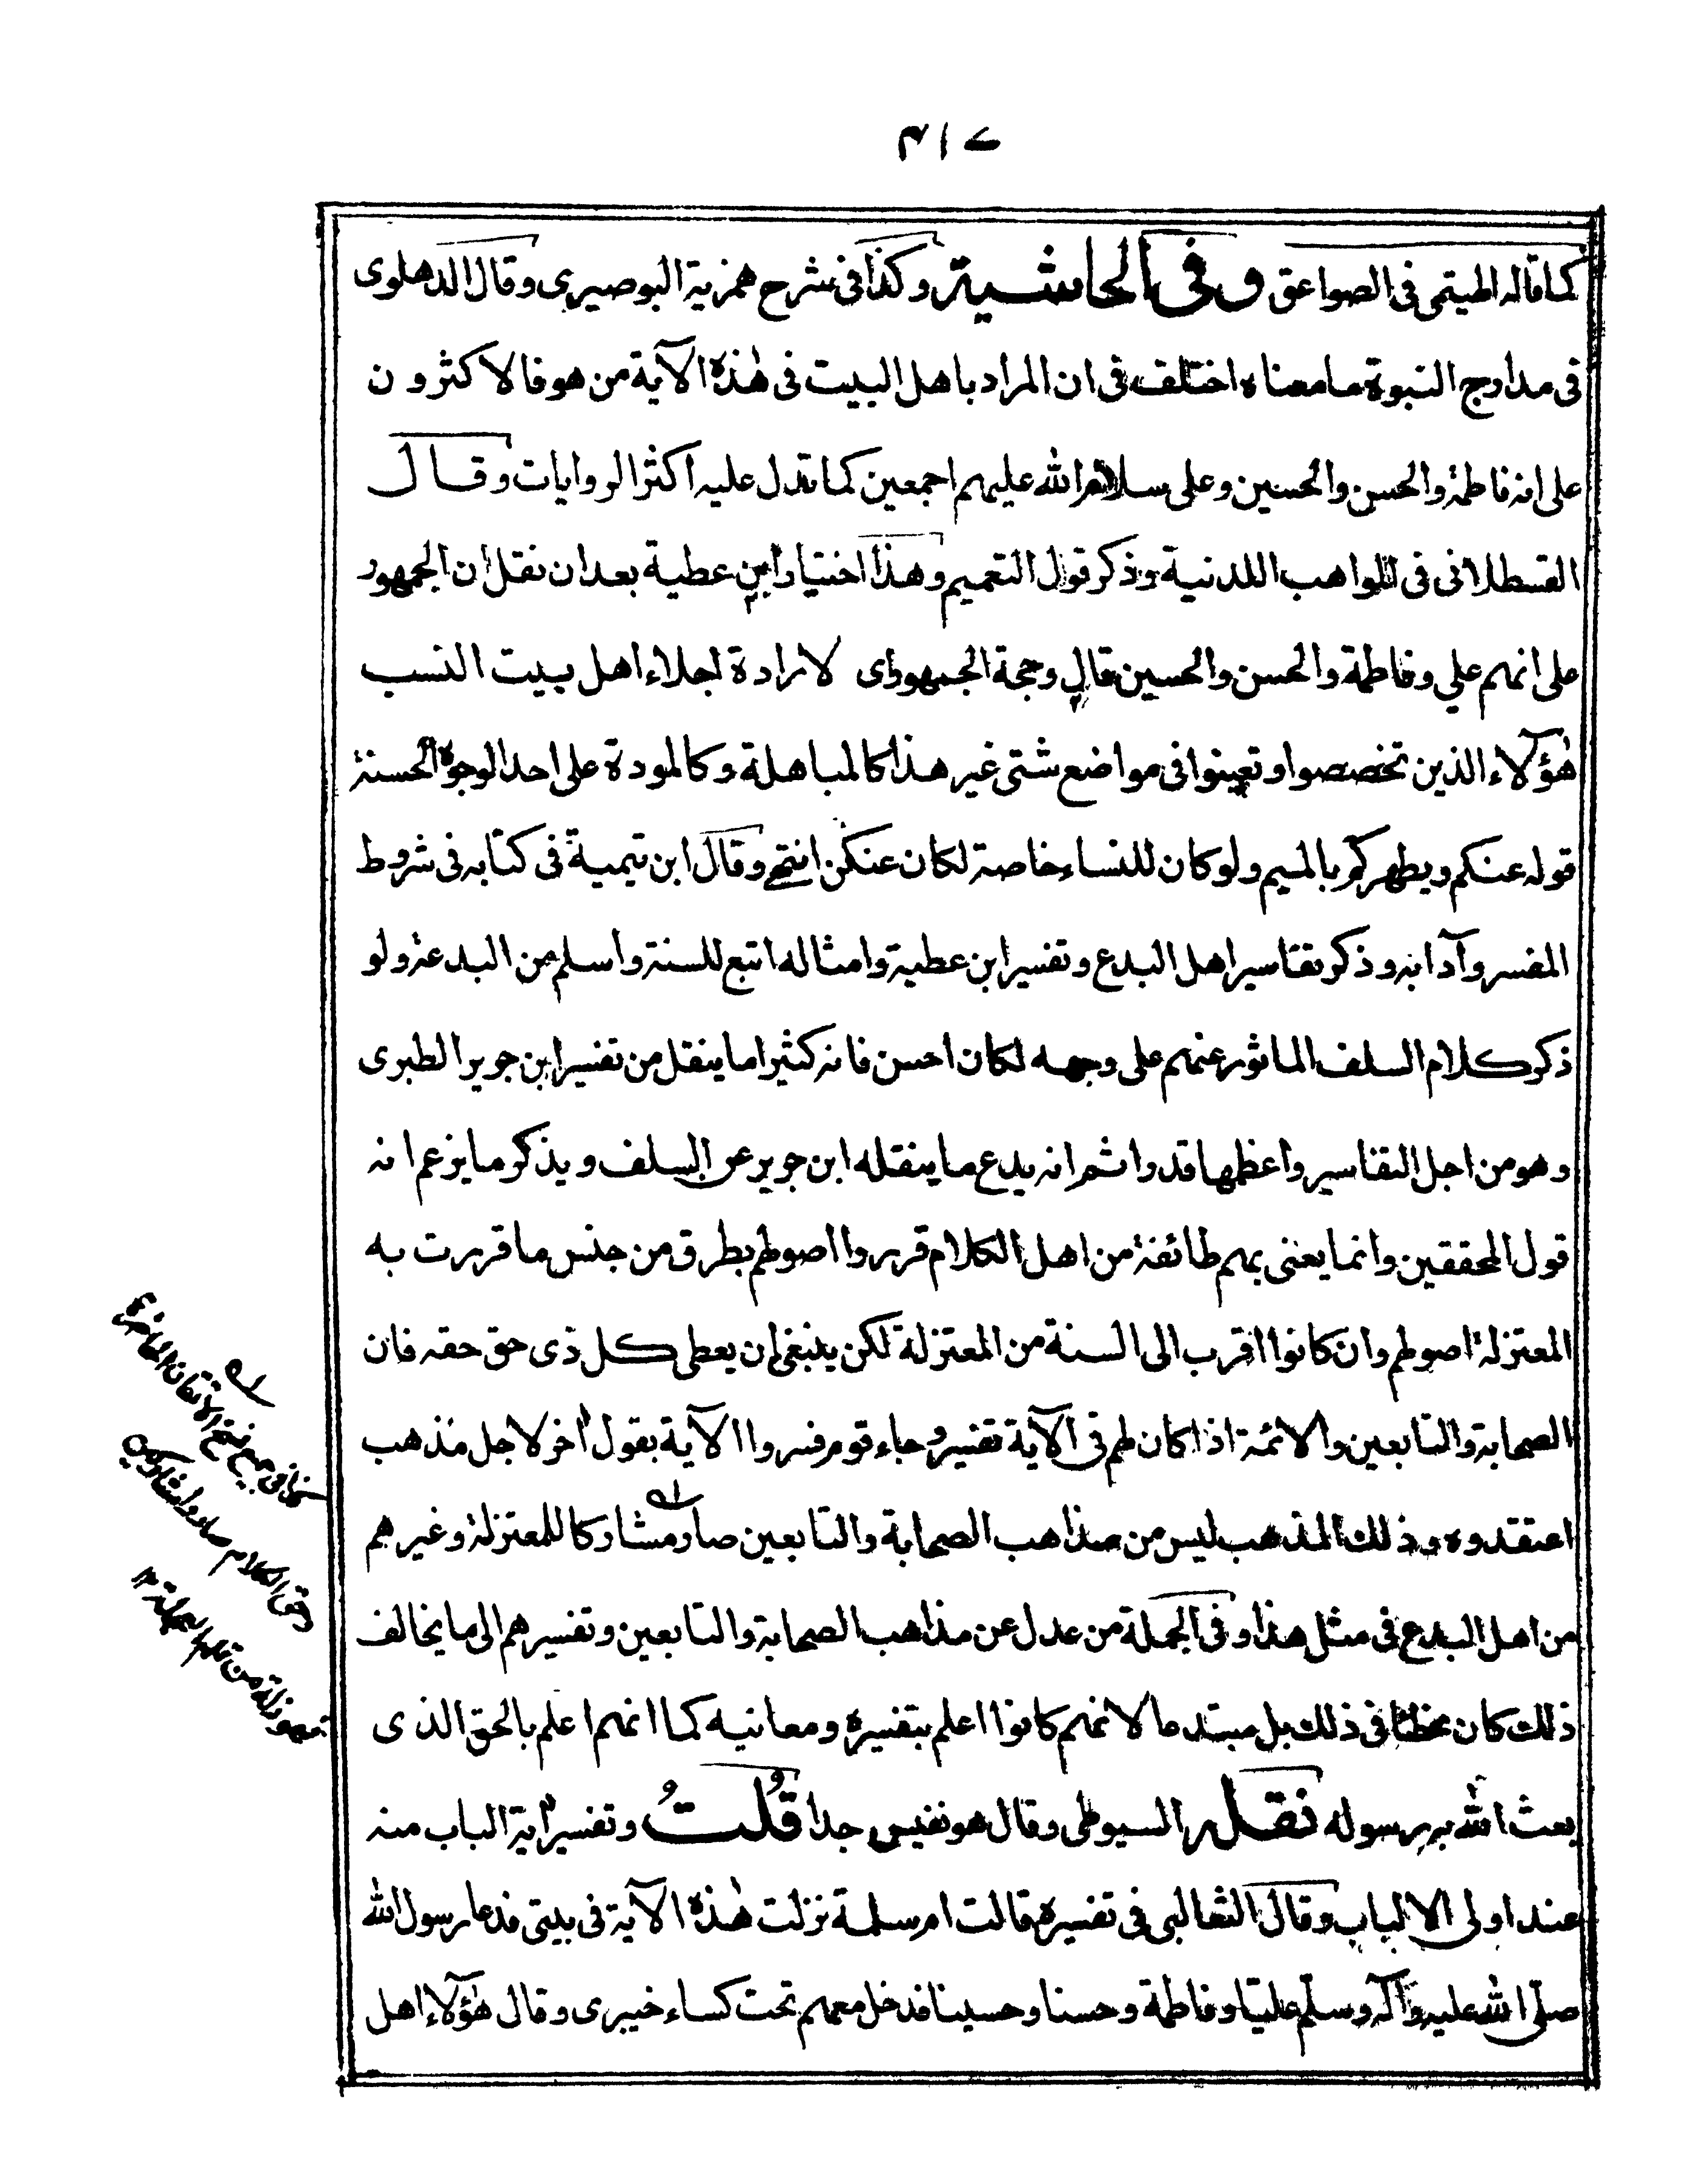 ٤١٧
كما قاله الهيتمى فى الصواعق وفى الحاشية وكذا فى شرح همزية البوصيرى وقال الدهلوى
فى مدارج النبوة ما معناه اختلف فى ان المراد باهل البيت فى هٰذه الآية من هو فالاكثرون
على انه فاطمة والحسن والحسين وعلى سلام الله عليهم اجمعين كما تدل عليه اكثر الروايات وقال
القسطلانى فى المواهب اللدنية وذكر قول التعميم وهذا اختيار ابن عطية بعد ان نقل ان الجمهور
على انهم علي وفاطمة والحسن والحسين قال وحجة الجمهور اى لارادة اجلاء اهل بيت النسب
هٰؤلاء الذين تخصصوا وتعينوا فى مواضع شتى غير هذا كالمباهلة وكالمودة على احد الوجوه الحسنة
قوله عنكم ويطهركم بالميم ولو كان للنساء خاصة لكان عنكن انتهى وقال ابن تيمية فى كتابه فى شروط
المفسر وآدابه وذكر تفاسير اهل البدع وتفسير ابن عطية وامثاله اتبع للسنة واسلم من البدعة ولو
ذكر كلام السلف الماثور عنهم على وجهه لكان احسن فانه كثيرا ما ينقل من تفسير ابن جرير الطبرى
وهو من اجل التفاسير واعظمها قدرا ثم انه يدع ما ينقله ابن جرير عن السلف ويذكر ما يزعم انه
قول المحققين وانما يعنى بهم طائفة من اهل الكلام قرروا اصولهم بطرق من جنس ما قررت به
المعتزلة اصولهم وان كانوا اقرب الى السنة من المعتزلة لكن ينبغى ان يعطى كل ذى حق حقه فان
الصحابة والتابعين والائمة اذا كان لهم فى الآية تفسير وجاء قوم فسروا الآية بقول اٰخر لاجل مذهب
اعتقدوه وذلك المذهب ليس من مذاهب الصحابة والتابعين صار مشاركا للمعتزلة وغيرهم
من اهل البدع فى مثل هذا وفى الجملة من عدل عن مذاهب الصحابة والتابعين وتفسيرهم الى ما يخالف
ذلك كان مخطئا فى ذلك بل مبتدعا لانهم كانوا اعلم بتفسيره ومعانيه كما انهم اعلم بالحق الذى
بعث الله به رسوله نقله السيوطى وقال هو نفيس جدا قُلتُ وتفسير اٰية الباب منه
عند اولى الالباب وقال الثعالبى فى تفسيره قالت ام سلمة نزلت هٰذه الآية فى بيتى فدعا رسول الله
صلّى الله عليه وآله وسلّم عليّا وفاطمة وحسنا وحسينا فدخل معهم تحت كساء خيبرى وقال هٰؤلاء اهل